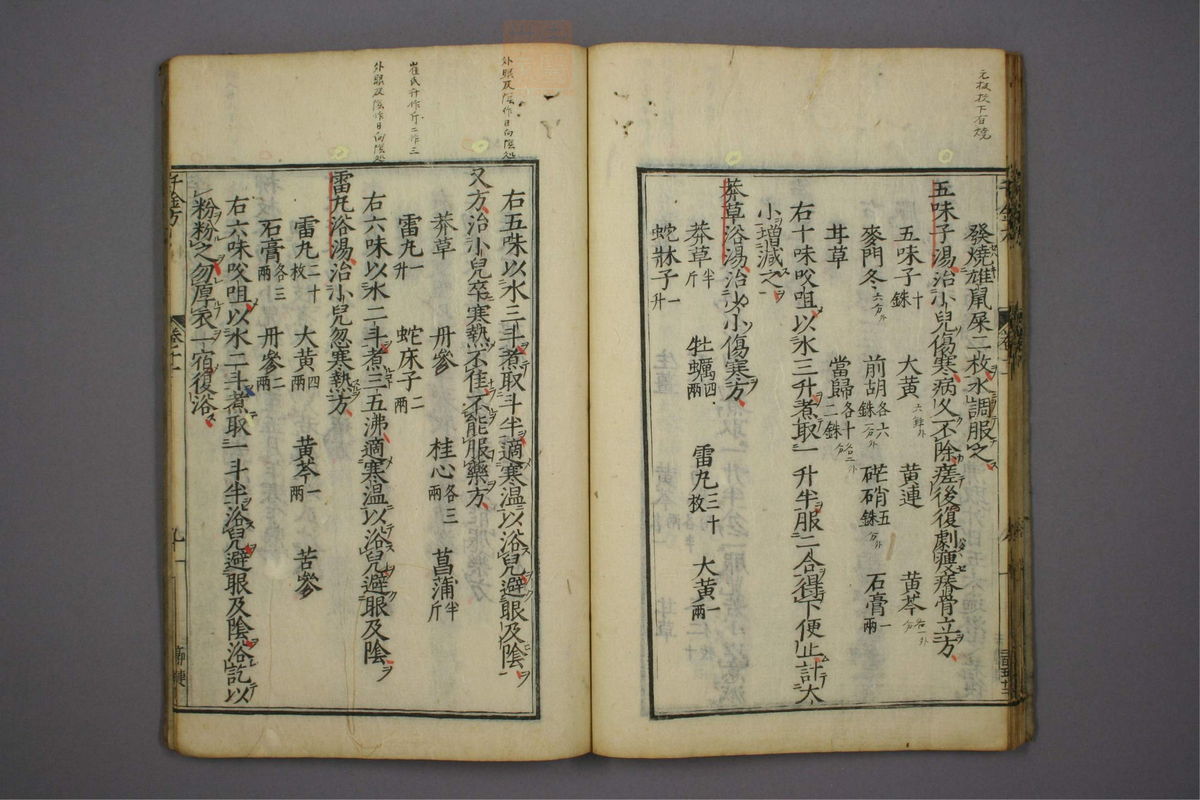 元板枚下有燒
發燒雄鼠屎二枚水調服之
五味子湯治小兒傷寒病久不除瘥後復劇瘦瘠骨立方
五味子十銖 大黃六銖外 黃連 黃芩各一分外
麥門冬六分外 前胡各六銖一分外 硭硝五銖分外 石膏一兩
甘草 當歸各十二銖各二分外
右十味㕮咀以水三升煮取一升半服二合得下便止計大
小增減之
莽草浴湯治少小傷寒方
莽草半斤 牡蠣四兩 雷丸三十枚 大黃一兩
蛇牀子一升
千金方 卷十一
外眼及陰作目向陰処
右五味以水三斗煮取斗半適寒温以浴兒避眼及陰
又方治小兒卒寒熱不佳不能服藥方
莽草 丹參 桂心各三兩 菖蒲半斤
崔氏升作斤二作三
雷丸一升 蛇床子二兩
外眼及陰作目向陰処
右六味以水二斗煮三五沸適寒温以浴兒避眼及陰
雷丸浴湯治小兒忽寒熱方
雷丸二十枚 大黃四兩 黃芩一兩 苦參
石膏各三兩 丹參二兩
右六味㕮咀以水二斗煮取一斗半浴兒避眼及陰浴訖以
粉粉之勿厚衣一宿復浴
千金方 卷十一